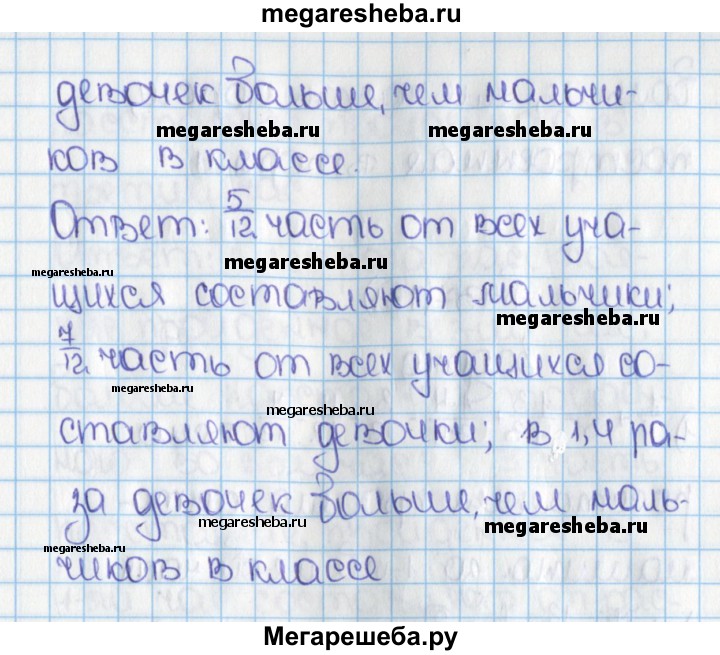 megaresheba.ru
девочек больше, чем мальчи-
megaresheba.ru megaresheba.ru
ков в классе.
Ответ: 5/12 часть от всех уча-
megaresheba.ru
megaresheba.ru
щихся составляют мальчики;
megaresheba.ru
7/12 часть от всех учащихся со-
megaresheba.ru
megaresheba.ru
ставляют девочки; в 1,4 ра-
за девочек больше, чем маль-
megaresheba.ru megaresheba.ru
megaresheba.ru
чиков в классе
Мегарешеба.ру